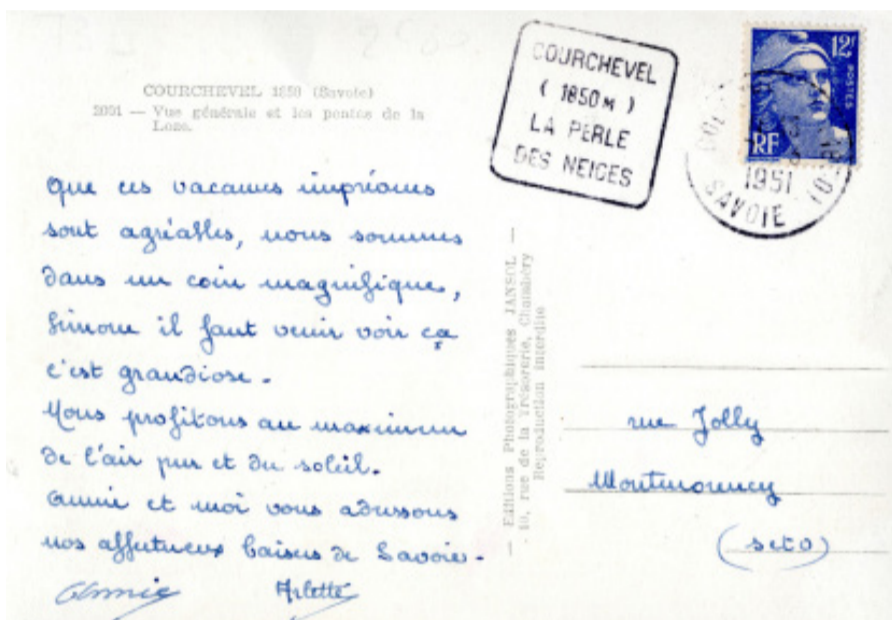 COURCHEVEL 1850 (Savoie)
2001 — Vue générale et les pentes de la
Loze.
COURCHEVEL
( 1850 M )
LA PERLE
DES NEIGES
12F
POSTES
RF
1951
SAVOIE
Que ces vacances imprévues
sont agréables, nous sommes
dans un coin magnifique,
Simone il faut venir voir ça
c'est grandiose.
Nous profitons au maximum
de l'air pur et du soleil.
Annie et moi vous adressons
nos affectueux baisers de Savoie.
Annie Arlette
— Editions Photographiques JANSOL —
10, rue de la Trésorerie, Chambéry
Reproduction interdite
rue Jolly
Montmorency
(seto)